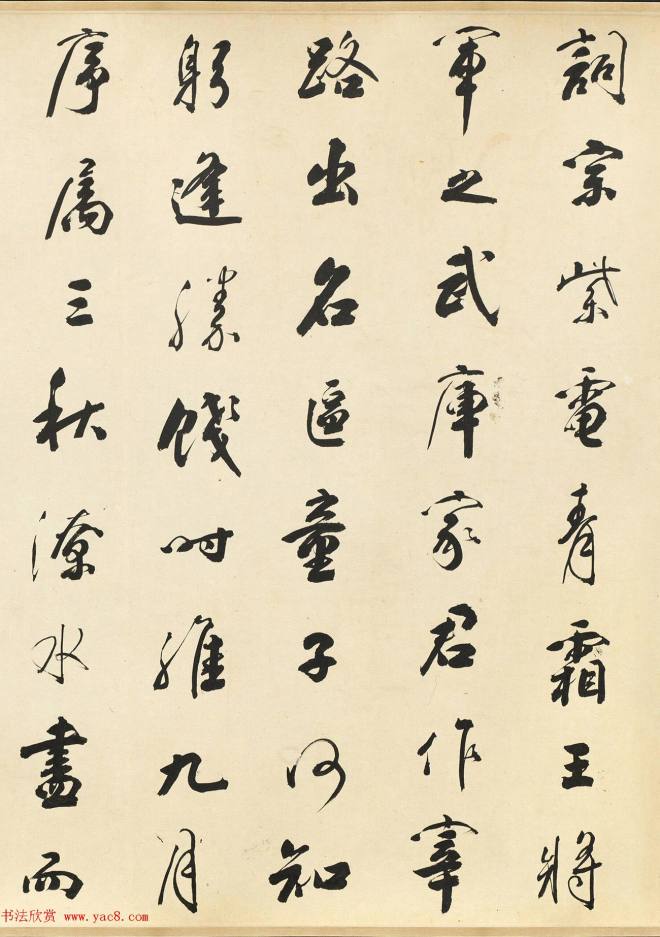 詞宗紫電青霜王將
軍之武庫家君作宰
路出名區童子何知
躬逢勝餞時維九月
序屬三秋潦水盡而
书法欣赏 www.yac8.com